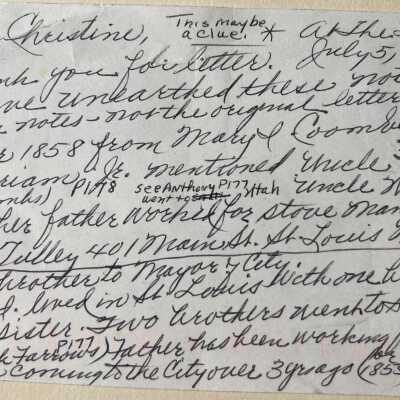 Christine, This maybe a clue. * At the
July 5,
you for letter.
unearthed these
notes - not the original letter
1858 from Mary E Coomb
Jr. mentioned Uncle
P178 see Anthony P177 went to Utah Uncle
her father worked for stove man
Tulley 401 Main St. St. Louis
brother to Mayor of City.
lived in St. Louis with one
sister. Two brothers went to
P177
Farrows) Father has been working for
coming to the City over 3 yrs ago (185